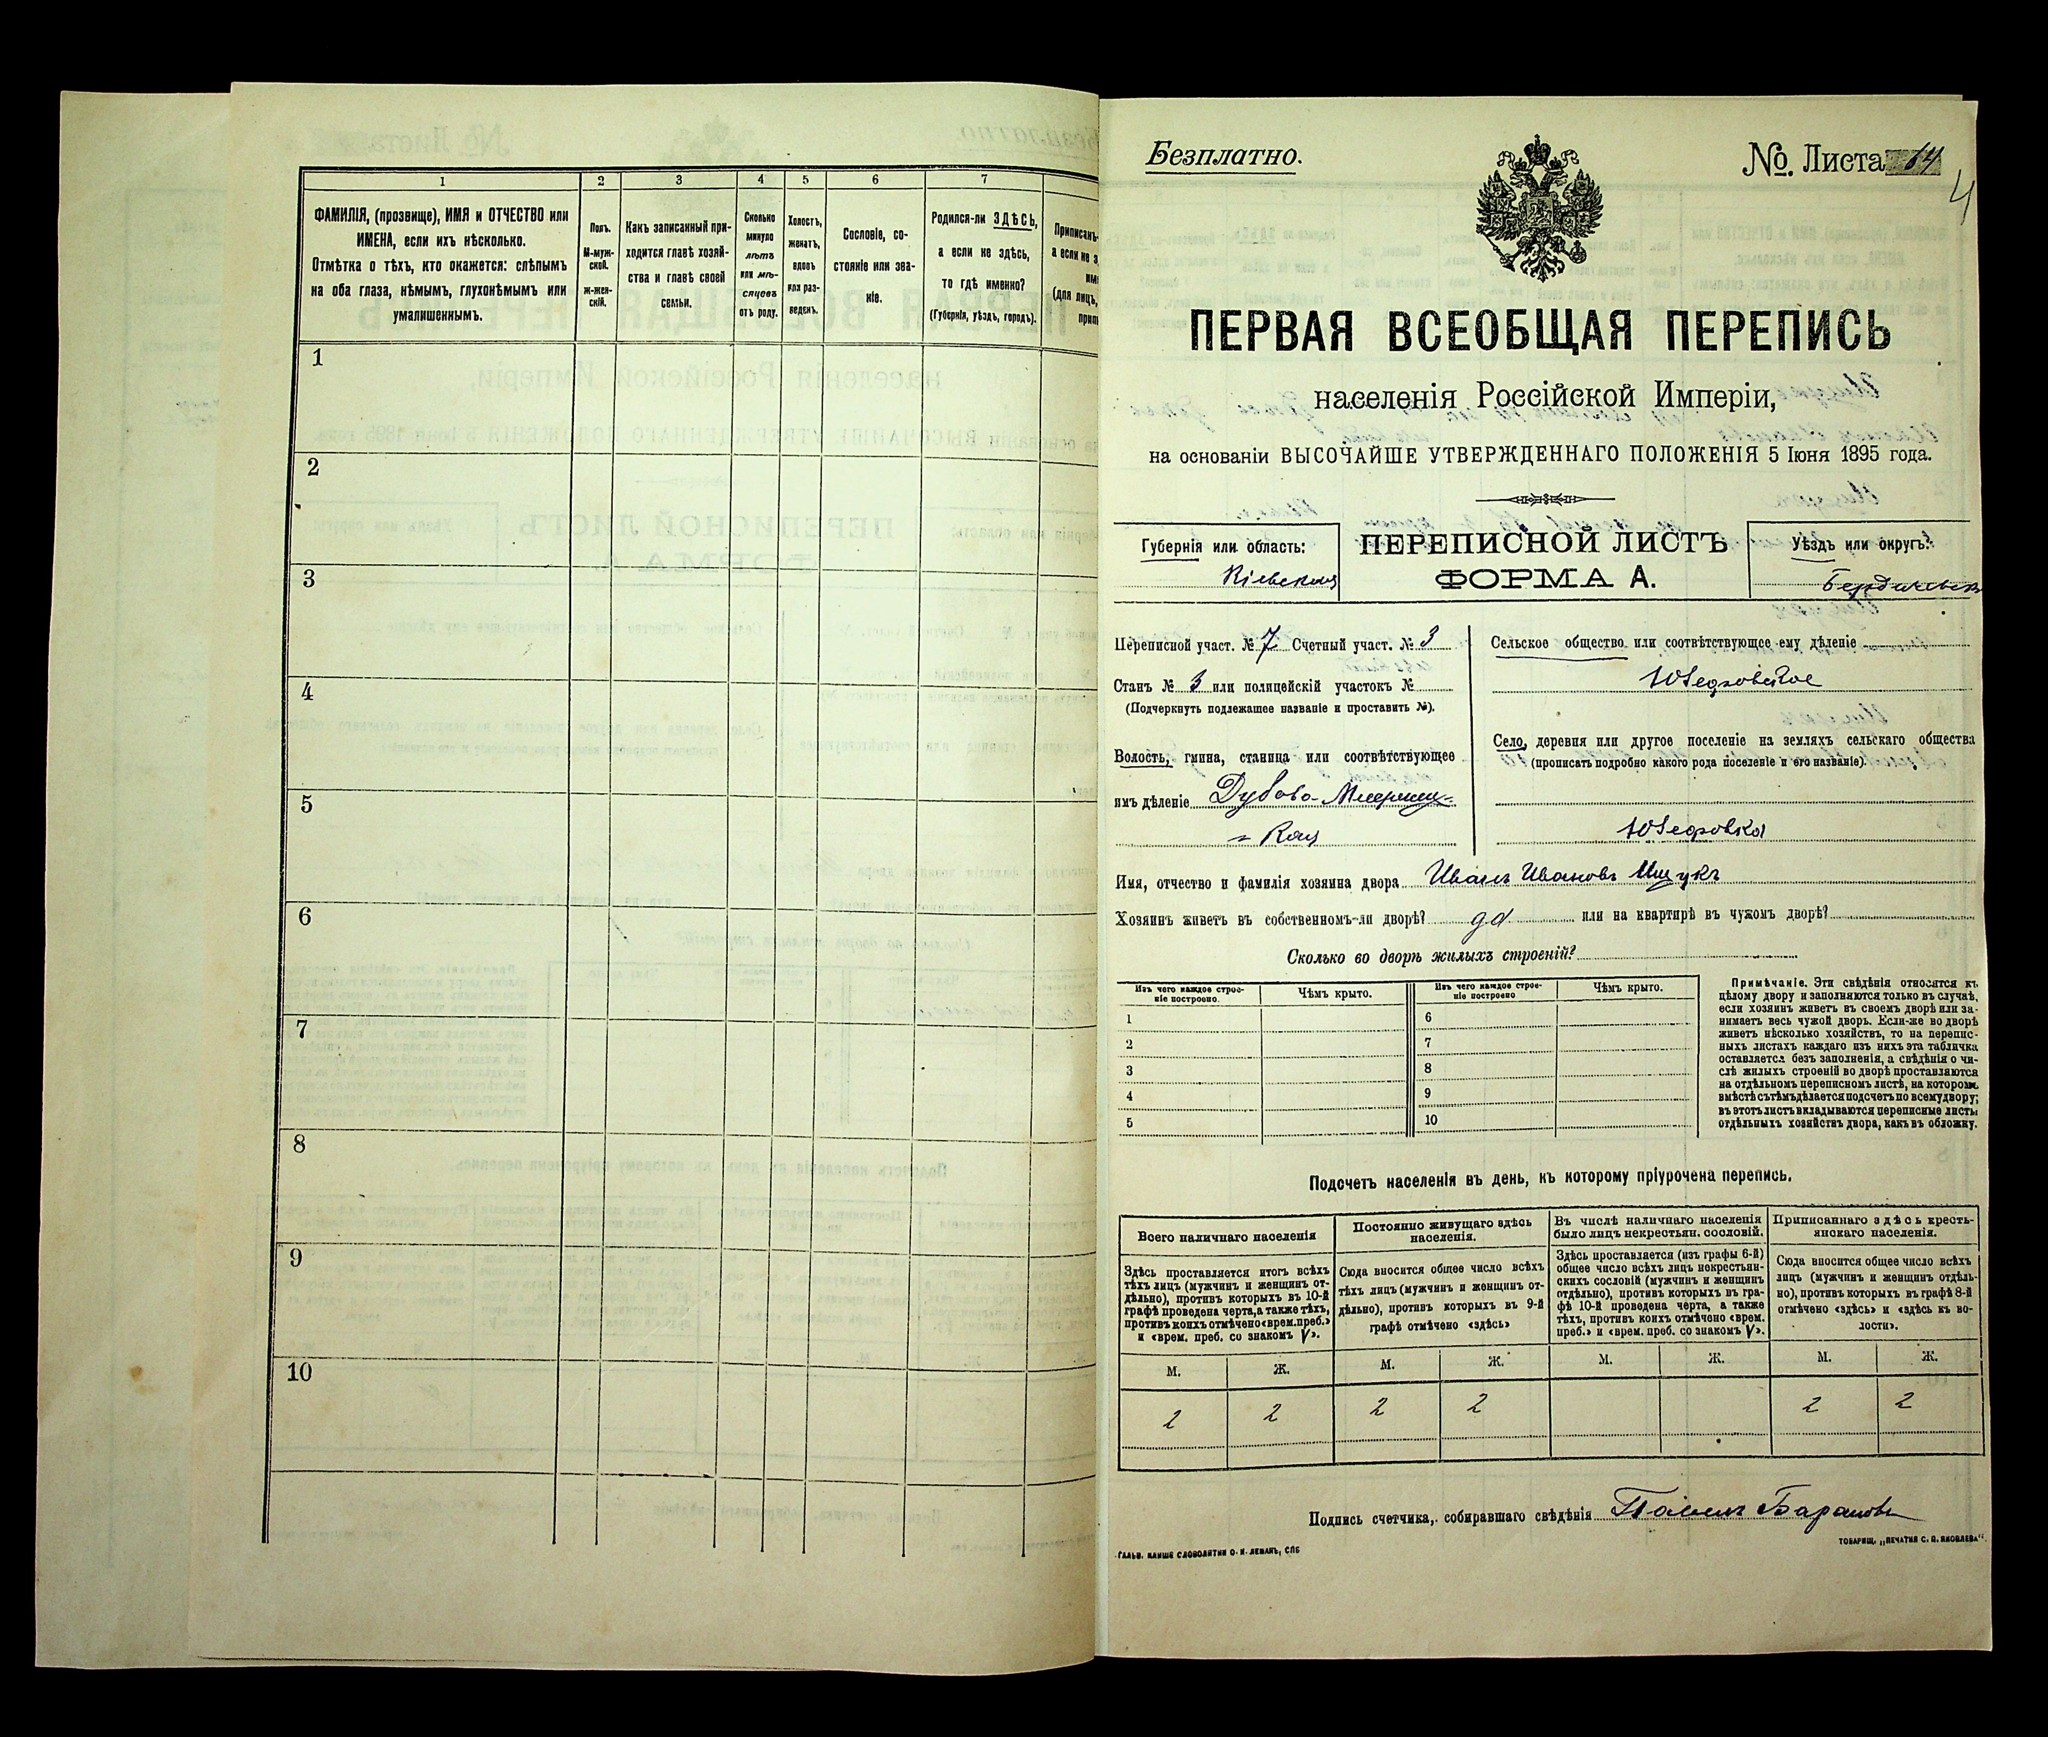 1
2
3
4
5
6
7
ФАМИЛІЯ, (прозвище), ИМЯ и ОТЧЕСТВО или
ИМЕНА, если ихъ нѣсколько.
Отмѣтка о тѣхъ, кто окажется: слѣпымъ
на оба глаза, нѣмымъ, глухонѣмымъ или
умалишеннымъ.
Полъ.
М-муж-
ской.
ж-жен-
скій.
Какъ записанный при-
ходится главѣ хозяй-
ства и главѣ своей
семьи.
Сколько
минуло
лѣтъ
или мѣ-
сяцевъ
отъ роду.
Холостъ,
женатъ,
вдовъ
или раз-
веденъ.
Сословіе, со-
стояніе или зва-
ніе.
Родился-ли ЗДѢСЬ,
а если не здѣсь,
то гдѣ именно?
(Губернія, уѣздъ, городъ).
1
2
3
4
5
6
7
8
9
10
Безплатно.
№. Листа 64
4
ПЕРВАЯ ВСЕОБЩАЯ ПЕРЕПИСЬ
населенія Россійской Имперіи,
на основаніи ВЫСОЧАЙШЕ УТВЕРЖДЕННАГО ПОЛОЖЕНІЯ 5 Іюня 1895 года.
Губернія или область:
Кіевская
ПЕРЕПИСНОЙ ЛИСТЪ
ФОРМА А.
Уѣздъ или округъ:
Бердичевск
Переписной участ. № 7 Счетный участ. № 3
Станъ № 3 или полицейскій участокъ №
(Подчеркнуть подлежащее названіе и проставить №).
Волость, гмина, станица или соотвѣтствующее
имъ дѣленіе Дубово-Махаринец-
кая
Сельское общество или соотвѣтствующее ему дѣленіе
Село, деревня или другое поселеніе на земляхъ сельскаго общества
(прописать подробно какого рода поселеніе и его названіе).
Имя, отчество и фамилія хозяина двора Иванъ Ивановъ Ищукъ
Хозяинъ живетъ въ собственномъ-ли дворѣ? да или на квартирѣ въ чужомъ дворѣ?
Сколько во дворѣ жилыхъ строеній?
Изъ чего каждое строе-
ніе построено.
Чѣмъ крыто.
Изъ чего каждое строе-
ніе построено
Чѣмъ крыто.
1
2
3
4
5
6
7
8
9
10
Примѣчаніе. Эти свѣдѣнія относятся къ
цѣлому двору и заполняются только въ случаѣ,
если хозяинъ живетъ въ своемъ дворѣ или за-
нимаетъ весь чужой дворъ. Если-же во дворѣ
живетъ нѣсколько хозяйствъ, то на перепис-
ныхъ листахъ каждаго изъ нихъ эта табличка
оставляется безъ заполненія, а свѣдѣнія о чи-
слѣ жилыхъ строеній во дворѣ проставляются
на отдѣльномъ переписномъ листѣ, на которомъ
вмѣстѣ съ тѣмъ дѣлается подсчетъ по всему двору;
въ этотъ листъ вкладываются переписные листы
отдѣльныхъ хозяйствъ двора, какъ въ обложку.
Подсчетъ населенія въ день, къ которому пріурочена перепись.
Всего наличнаго населенія
Здѣсь проставляется итогъ всѣхъ
тѣхъ лицъ (мужчинъ и женщинъ от-
дѣльно), противъ которыхъ въ 10-й
графѣ проведена черта, а также тѣхъ,
противъ коихъ отмѣчено «врем. преб.»
и «врем. преб. со знакомъ V».
Постоянно живущаго здѣсь
населенія.
Сюда вносится общее число всѣхъ
тѣхъ лицъ (мужчинъ и женщинъ от-
дѣльно), противъ которыхъ въ 9-й
графѣ отмѣчено «здѣсь»
Въ числѣ наличнаго населенія
было лицъ некрестьян. сословій.
Здѣсь проставляется (изъ графы 6-й)
общее число всѣхъ лицъ некрестьян-
скихъ сословій (мужчинъ и женщинъ
отдѣльно), противъ которыхъ въ гра-
фѣ 10-й проведена черта, а также
тѣхъ, противъ коихъ отмѣчено «врем.
преб.» и «врем. преб. со знакомъ V».
Приписаннаго здѣсь кресть-
янскаго населенія.
Сюда вносится общее число всѣхъ
лицъ (мужчинъ и женщинъ отдѣль-
но), противъ которыхъ въ графѣ 8-й
отмѣчено «здѣсь» и «здѣсь къ во-
лости».
М. Ж. М. Ж. М. Ж. М. Ж.
2 2 2 2 2 2
Подпись счетчика, собиравшаго свѣдѣнія Павелъ Барановъ
ГАЛЬВ. КЛИШЕ СЛОВОЛИТНИ О. И. ЛЕМАНЪ, СПБ
ТОВАРИЩ. „ПЕЧАТНИ С. П. ЯКОВЛЕВА“.